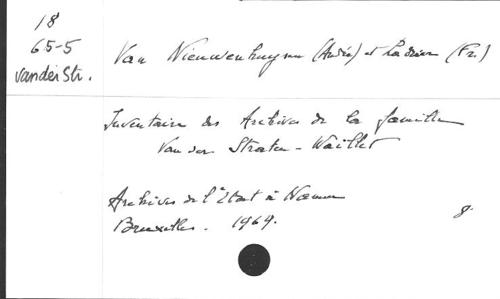 18
65-5
vanderStr.
Van Nieuwenhuysen (André) et Ladrier (Fr.)
Inventaire des Archives de la famille
Van der Straten-Waillet
Archives de l'Etat à Namur
Bruxelles. 1969.
8.